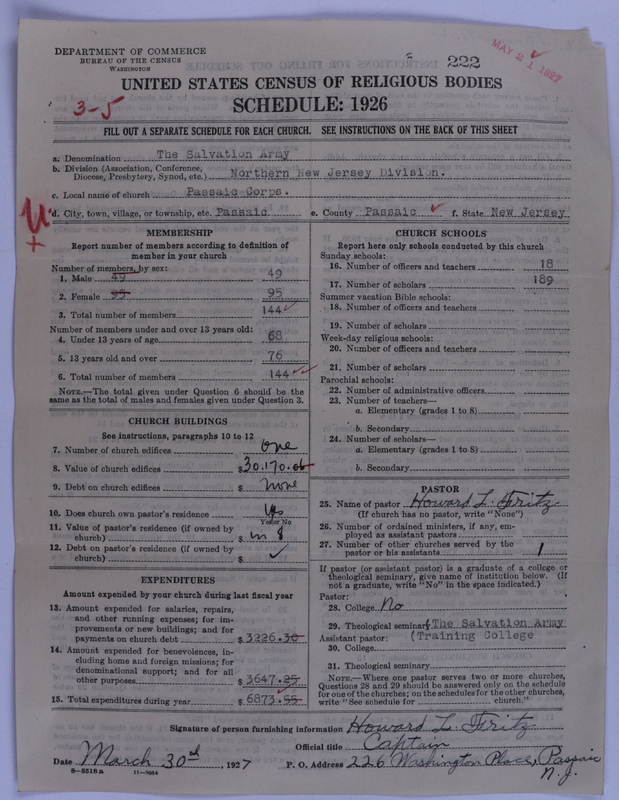 DEPARTMENT OF COMMERCE
BUREAU OF THE CENSUS
WASHINGTON
222
MAY 21 1927
UNITED STATES CENSUS OF RELIGIOUS BODIES
SCHEDULE: 1926
3-5
FILL OUT A SEPARATE SCHEDULE FOR EACH CHURCH. SEE INSTRUCTIONS ON THE BACK OF THIS SHEET
a. Denomination The Salvation Army
b. Division (Association, Conference, Diocese, Presbytery, Synod, etc.) Northern New Jersey Division.
c. Local name of church Passaic Corps.
d. City, town, village, or township, etc. Passaic e. County Passaic f. State New Jersey
MEMBERSHIP
Report number of members according to definition of
member in your church
Number of members, by sex:
1. Male 49 49
2. Female 95 95
3. Total number of members 144
Number of members under and over 13 years old:
4. Under 13 years of age 68
5. 13 years old and over 76
6. Total number of members 144
NOTE.—The total given under Question 6 should be
same as the total of males and females given under Question 3.
CHURCH BUILDINGS
See instructions, paragraphs 10 to 12
7. Number of church edifices one
8. Value of church edifices $30.170.00
9. Debt on church edifices $ none
10. Does church own pastor's residence yes
Yes or No
11. Value of pastor's residence (if owned by
church) $ in 8
12. Debt on pastor's residence (if owned by
church) $
EXPENDITURES
Amount expended by your church during last fiscal year
13. Amount expended for salaries, repairs,
and other running expenses; for im-
provements or new buildings; and for
payments on church debt $3226.30
14. Amount expended for benevolences, in-
cluding home and foreign missions; for
denominational support; and for all
other purposes $3647.25
15. Total expenditures during year $6873.55
CHURCH SCHOOLS
Report here only schools conducted by this church
Sunday schools:
16. Number of officers and teachers 18
17. Number of scholars 189
Summer vacation Bible schools:
18. Number of officers and teachers
19. Number of scholars
Week-day religious schools:
20. Number of officers and teachers
21. Number of scholars
Parochial schools:
22. Number of administrative officers
23. Number of teachers—
a. Elementary (grades 1 to 8)
b. Secondary
24. Number of scholars—
a. Elementary (grades 1 to 8)
b. Secondary
PASTOR
25. Name of pastor Howard L. Fritz
(If church has no pastor, write "None")
26. Number of ordained ministers, if any, em-
ployed as assistant pastors
27. Number of other churches served by the
pastor or his assistants 1
If pastor (or assistant pastor) is a graduate of a college or
theological seminary, give name of institution below. (If
not a graduate, write "No" in the space indicated.)
Pastor:
28. College No
29. Theological seminary (The Salvation Army
Assistant pastor: (Training College
30. College
31. Theological seminary
NOTE.—Where one pastor serves two or more churches,
Questions 28 and 29 should be answered only on the schedule
for one of the churches; on the schedules for the other churches,
write "See schedule for church."
Signature of person furnishing information Howard L. Fritz
Official title Captain
Date March 30th, 1927 P. O. Address 226 Washington Place, Passaic
N. J.
8-5518a 11-9084